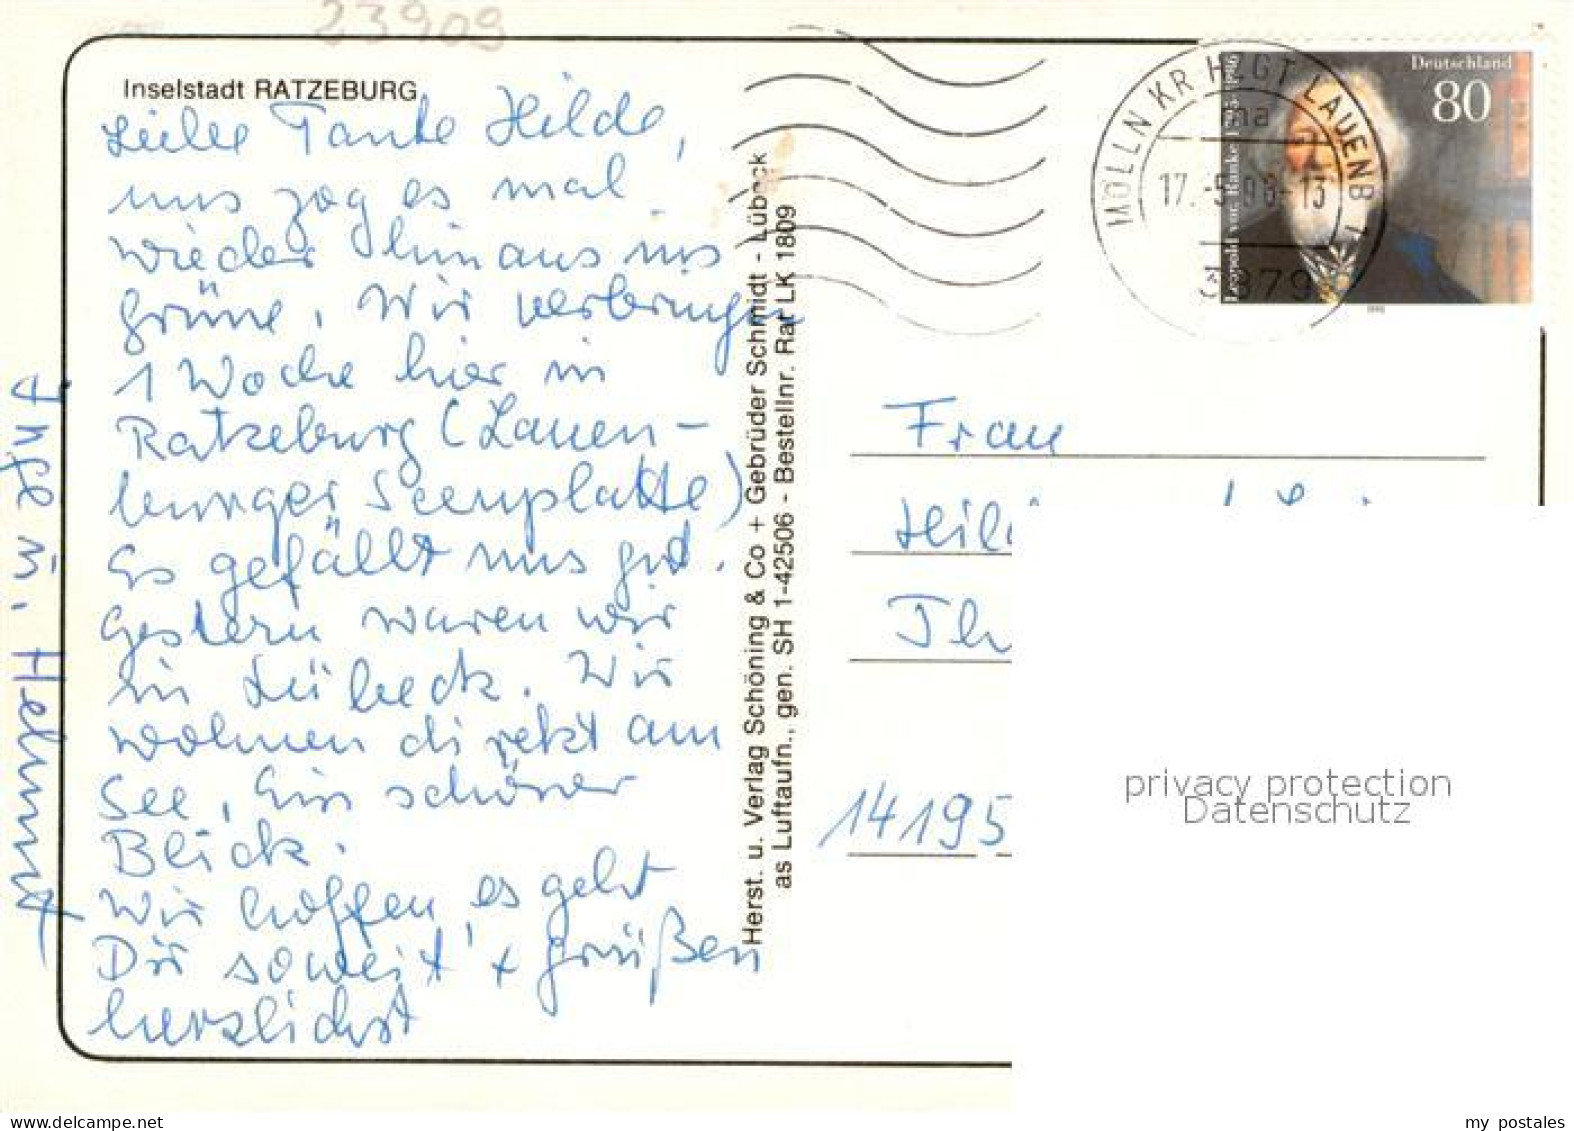 23909
Inselstadt RATZEBURG
Liebe Tante Hilde,
uns zog es mal
wieder hinaus ins
Grüne. Wir verbringen
1 Woche hier in
Ratzeburg (Lauen-
burger Seenplatte)
Es gefällt uns gut.
Gestern waren wir
in Lübeck. Wir
wohnen direkt am
See, ein schöner
Blick.
Wir hoffen, es geht
Dir soweit + grüßen
herzlichst
Inge u. Helmut
Herst. u. Verlag Schöning & Co + Gebrüder Schmidt - Lübeck
as Luftaufn., gen. SH 1-42506 - Bestellnr. Rat LK 1809
MÖLLN KR HZGT LAUENB 1
ma
17.-5.96-13
Deutschland
80
Leopold von Ranke 1795-1886
Frau
14195
privacy protection
Datenschutz
my postales